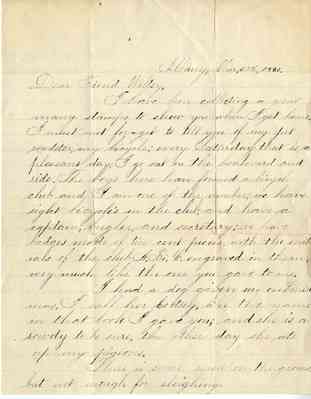 Albany, Nov. 28, 1880.
Dear Friend Willsy,
I have been collecting a great
many stamps to show you when I get home.
I must not forget to tell you of my pet
my bicycle; every Saturday that is a
pleasant day, I go out on the boulevard and
ride. The boys here have formed a bicycle
club and I am one of the number; we have
eight bicycle's in the club and have a
captain, bugler, and secretary; we have
badges made of ten cent pieces, with the init-
ials of the club A. B. C. engraved on them,
very much like the one you gave to me.
I had a dog given me
I call her Betsey, like the name
in that book I gave you, and she is a
rowdy to be sure, the other day she ate
up my pigeons.
There is some snow on the ground
but not enough for sleighing.